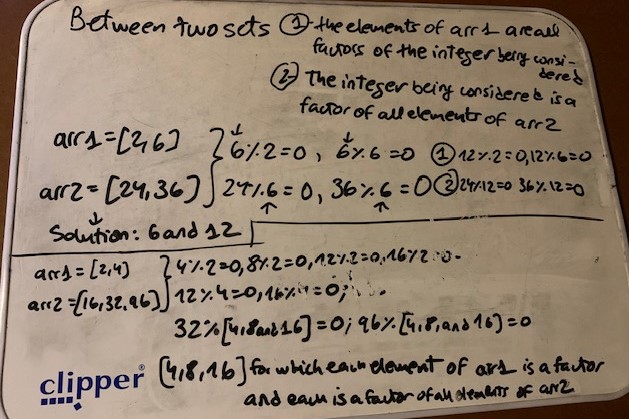 Between two sets ① the elements of arr1 are all
factors of the integer being consi-
dered
② The integer being considered is a
factor of all elements of arr2
arr1=[2,6]
6%2=0, 6%6=0 ① 12%2=0,12%6=0
arr2=[24,36]
24%6=0, 36%6=0 ② 24%12=0 36%12=0
Solution: 6 and 12
arr1=[2,4]
4%2=0,8%2=0,12%2=0,16%2=0.
arr2=[16,32,96]
12%4=0,16%4=0;
32%[4,8and16]=0; 96%[4,8,and 16]=0
[4,8,16] for which each element of arr1 is a factor
and each is a factor of all elements of arr2
clipper®